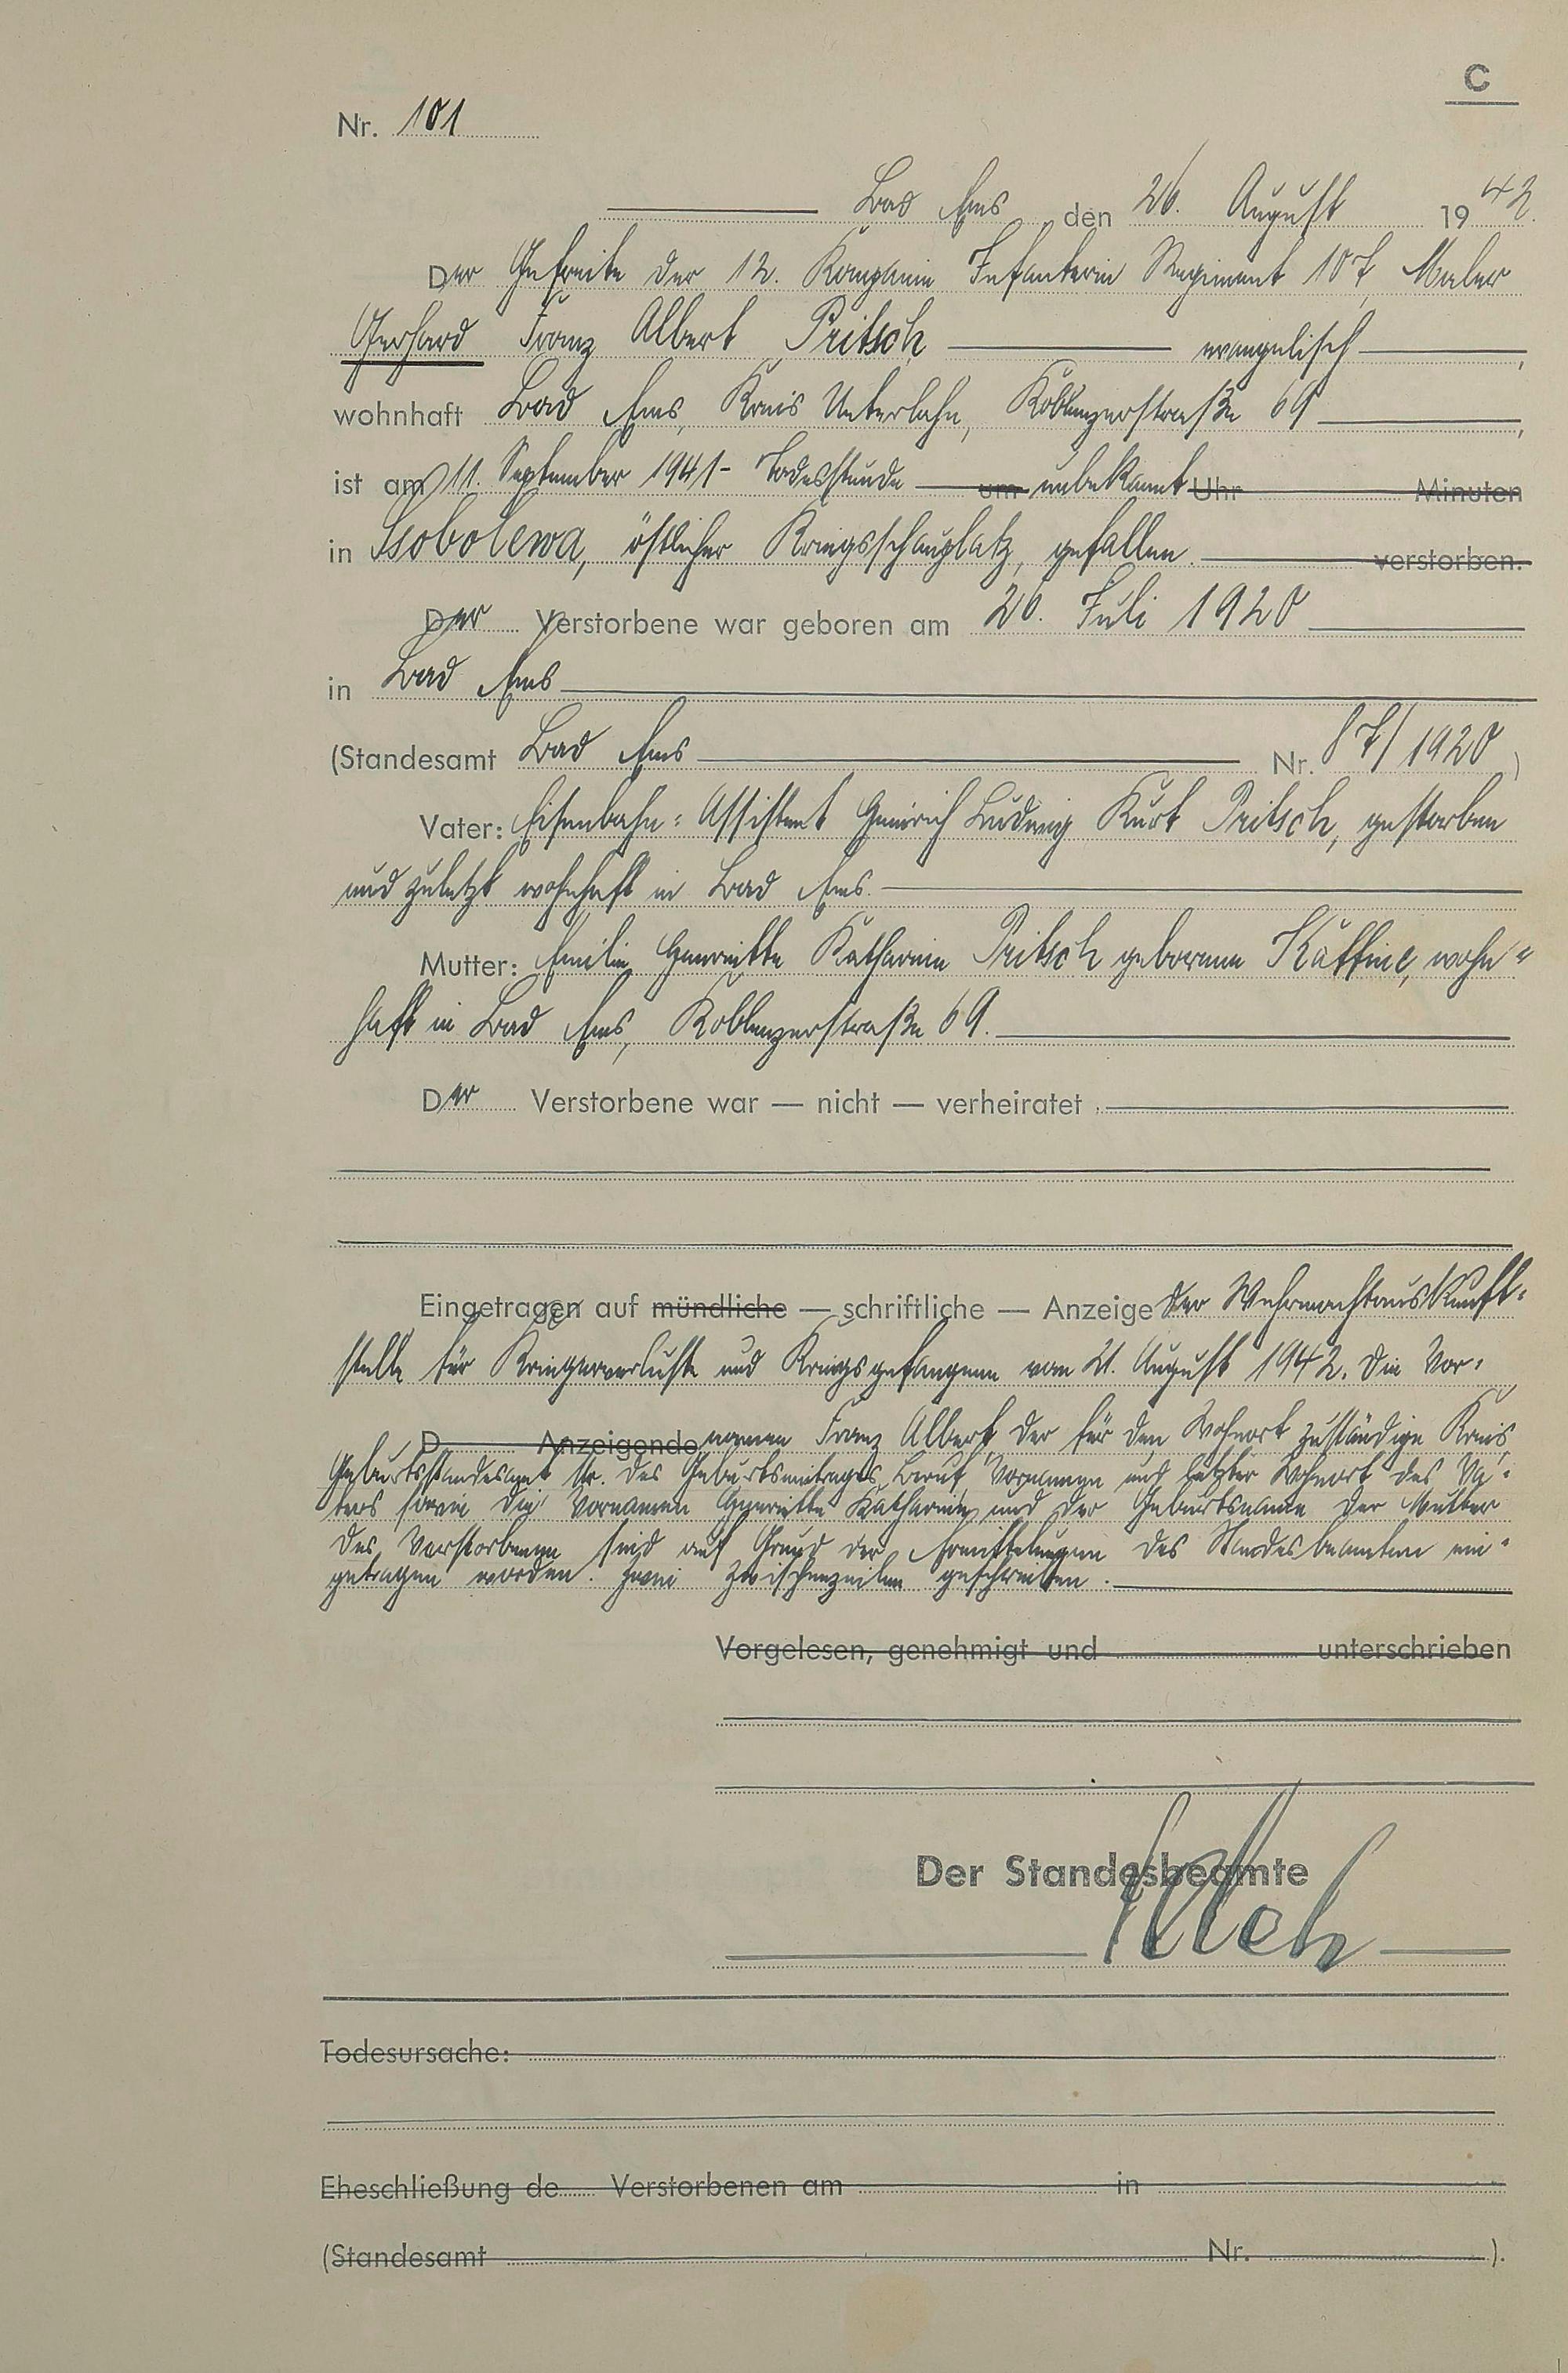 C
Nr. 101
Bad Ems den 26. August 1942.
Der Gefreite der 12. Kompanie Infanterie Regiment 107, Maler
Gerhard Franz Albert Pritsch evangelisch,
wohnhaft Bad Ems, Kreis Unterlahn, Koblenzerstraße 69,
ist am 11. September 1941 - Todesstunde um unbekannt Uhr Minuten
in Ssobolewa, östlicher Kriegsschauplatz, gefallen. verstorben.
Der Verstorbene war geboren am 26. Juli 1920
in Bad Ems
(Standesamt Bad Ems Nr. 87/1920)
Vater: Eisenbahn-Assistent Heinrich Ludwig Kurt Pritsch, gestorben
und zuletzt wohnhaft in Bad Ems.
Mutter: Emilie Henriette Katharine Pritsch geborene Käffine, wohn-
haft in Bad Ems, Koblenzerstraße 69.
Der Verstorbene war — nicht — verheiratet
Eingetragen auf mündliche — schriftliche — Anzeige der Wehrmachtauskunft-
stelle für Kriegerverluste und Kriegsgefangene vom 21. August 1942. Die Vor-
D Anzeigende namen Franz Albert, der für den Wohnort zuständige Kreis,
Geburtsstandesamt Nr. des Geburtseintrages, Beruf, Vornamen und letzter Wohnort des Va-
ters sowie die Vornamen Henriette Katharine und der Geburtsname der Mutter
des Verstorbenen sind auf Grund der Ermittelungen des Standesbeamten ein-
getragen worden. Zwei Zwischenzeilen geschrieben.
Vorgelesen, genehmigt und unterschrieben
Der Standesbeamte
Todesursache:
Eheschließung de Verstorbenen am in
(Standesamt Nr. ).